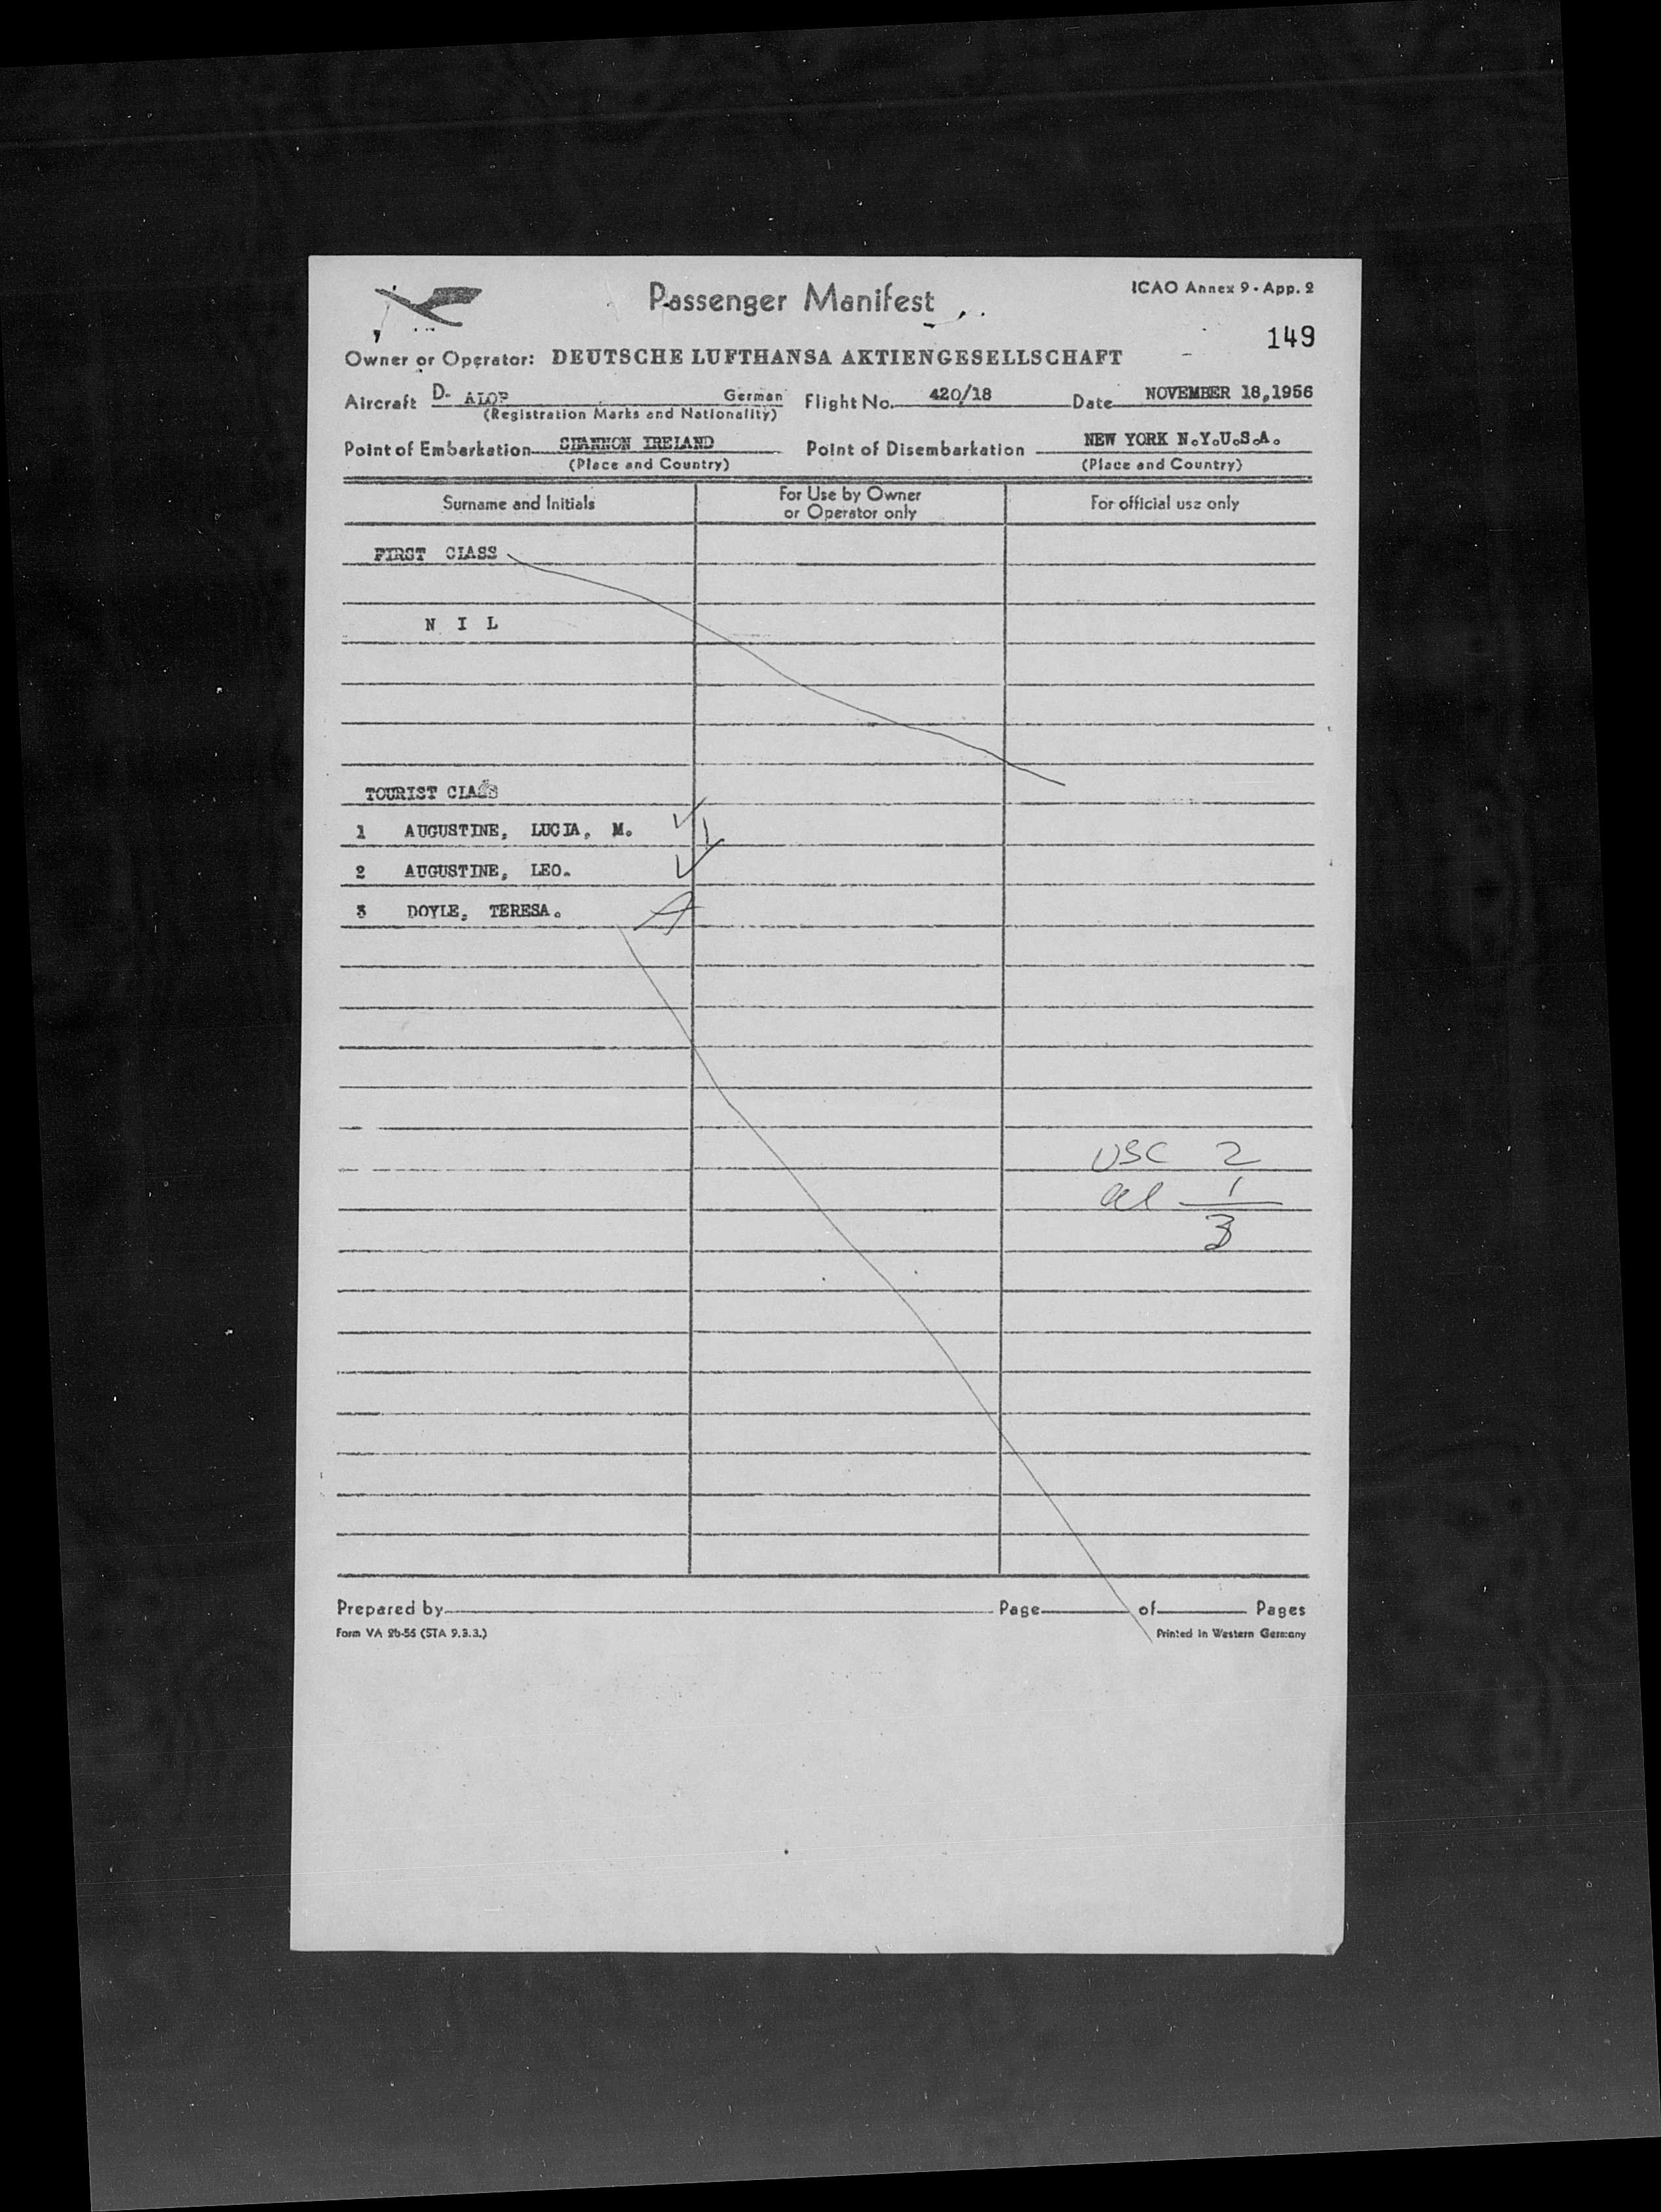 Passenger Manifest
ICAO Annex 9 - App. 2
149
Owner or Operator: DEUTSCHE LUFTHANSA AKTIENGESELLSCHAFT
Aircraft D- ALOP German Flight No. 420/18 Date NOVEMBER 18,1956
(Registration Marks and Nationality)
Point of Embarkation SHANNON IRELAND Point of Disembarkation NEW YORK N.Y.U.S.A.
(Place and Country) (Place and Country)
Surname and Initials For Use by Owner or Operator only For official use only
FIRST CLASS
N I L
TOURIST CLASS
1 AUGUSTINE, LUCIA, M.
2 AUGUSTINE, LEO.
3 DOYLE, TERESA.
USC 2
al 1
3
Prepared by Page of Pages
Form VA 2b-56 (STA 9.3.3.) Printed in Western Germany